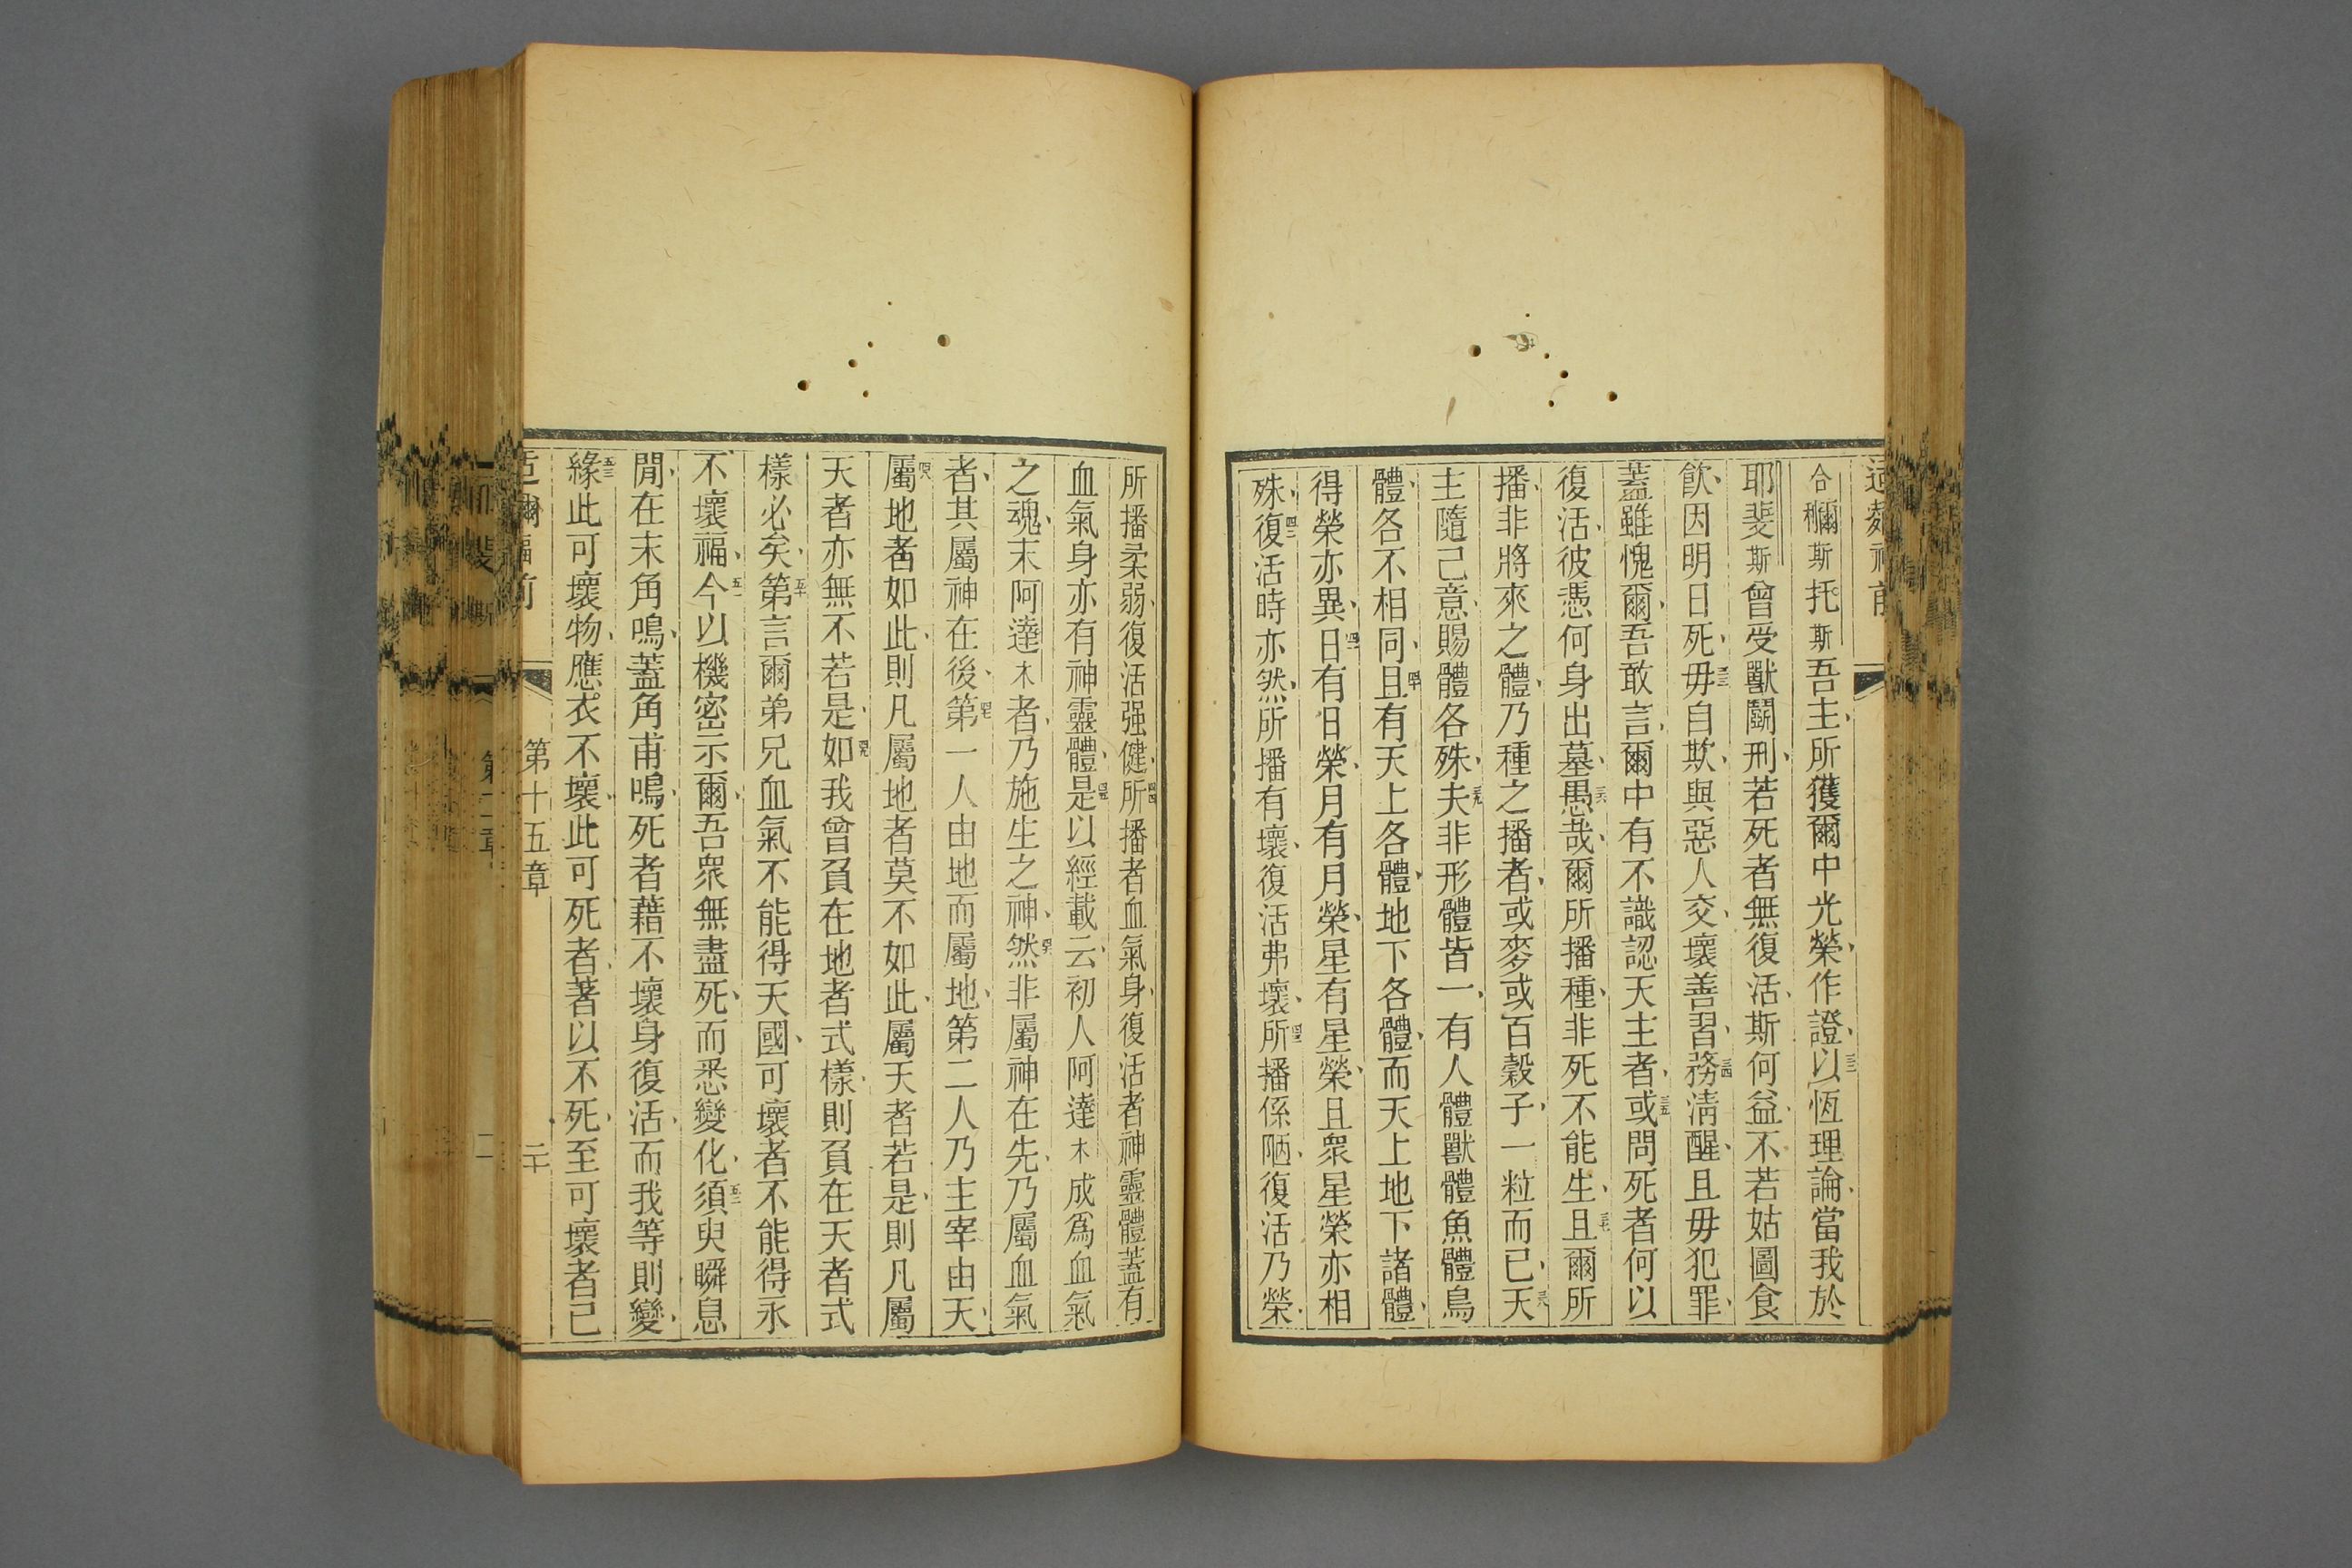 合穪斯托斯吾主所獲爾中光榮作證三二以恆理論當我於
耶斐斯曾受獸鬬刑若死者無復活斯何益不若姑圖食
飲因明日死三三毋自欺與惡人交壞善習三四務清醒且毋犯罪
蓋雖愧爾吾敢言爾中有不識認天主者三五或問死者何以
復活彼憑何身出墓三六愚哉爾所播種非死不能生三七且爾所
播非將來之體乃種之播者或麥或百穀子一粒而已三八天
主隨己意賜體各殊三九夫非形體皆一有人體獸體魚體鳥
體各不相同四十且有天上各體地下各體而天上地下諸體
得榮亦異四一日有日榮月有月榮星有星榮且衆星榮亦相
殊四二復活時亦然所播有壞復活弗壞四三所播係陋復活乃榮
所播柔弱復活强健四四所播者血氣身復活者神靈體蓋有
血氣身亦有神靈體四五是以經載云初人阿達木成爲血氣
之魂末阿達木者乃施生之神四六然非屬神在先乃屬血氣
者其屬神在後四七第一人由地而屬地第二人乃主宰由天
四八屬地者如此則凡屬地者莫不如此屬天者若是則凡屬
天者亦無不若是四九如我曾負在地者式樣則負在天者式
樣必矣五十第言爾弟兄血氣不能得天國可壞者不能得永
不壞福五一今以機密示爾吾衆無盡死而悉變化五二須臾瞬息
閒在末角鳴蓋角甫鳴死者藉不壞身復活而我等則變
五三緣此可壞物應衣不壞此可死者著以不死至可壞者已
第十五章
二十